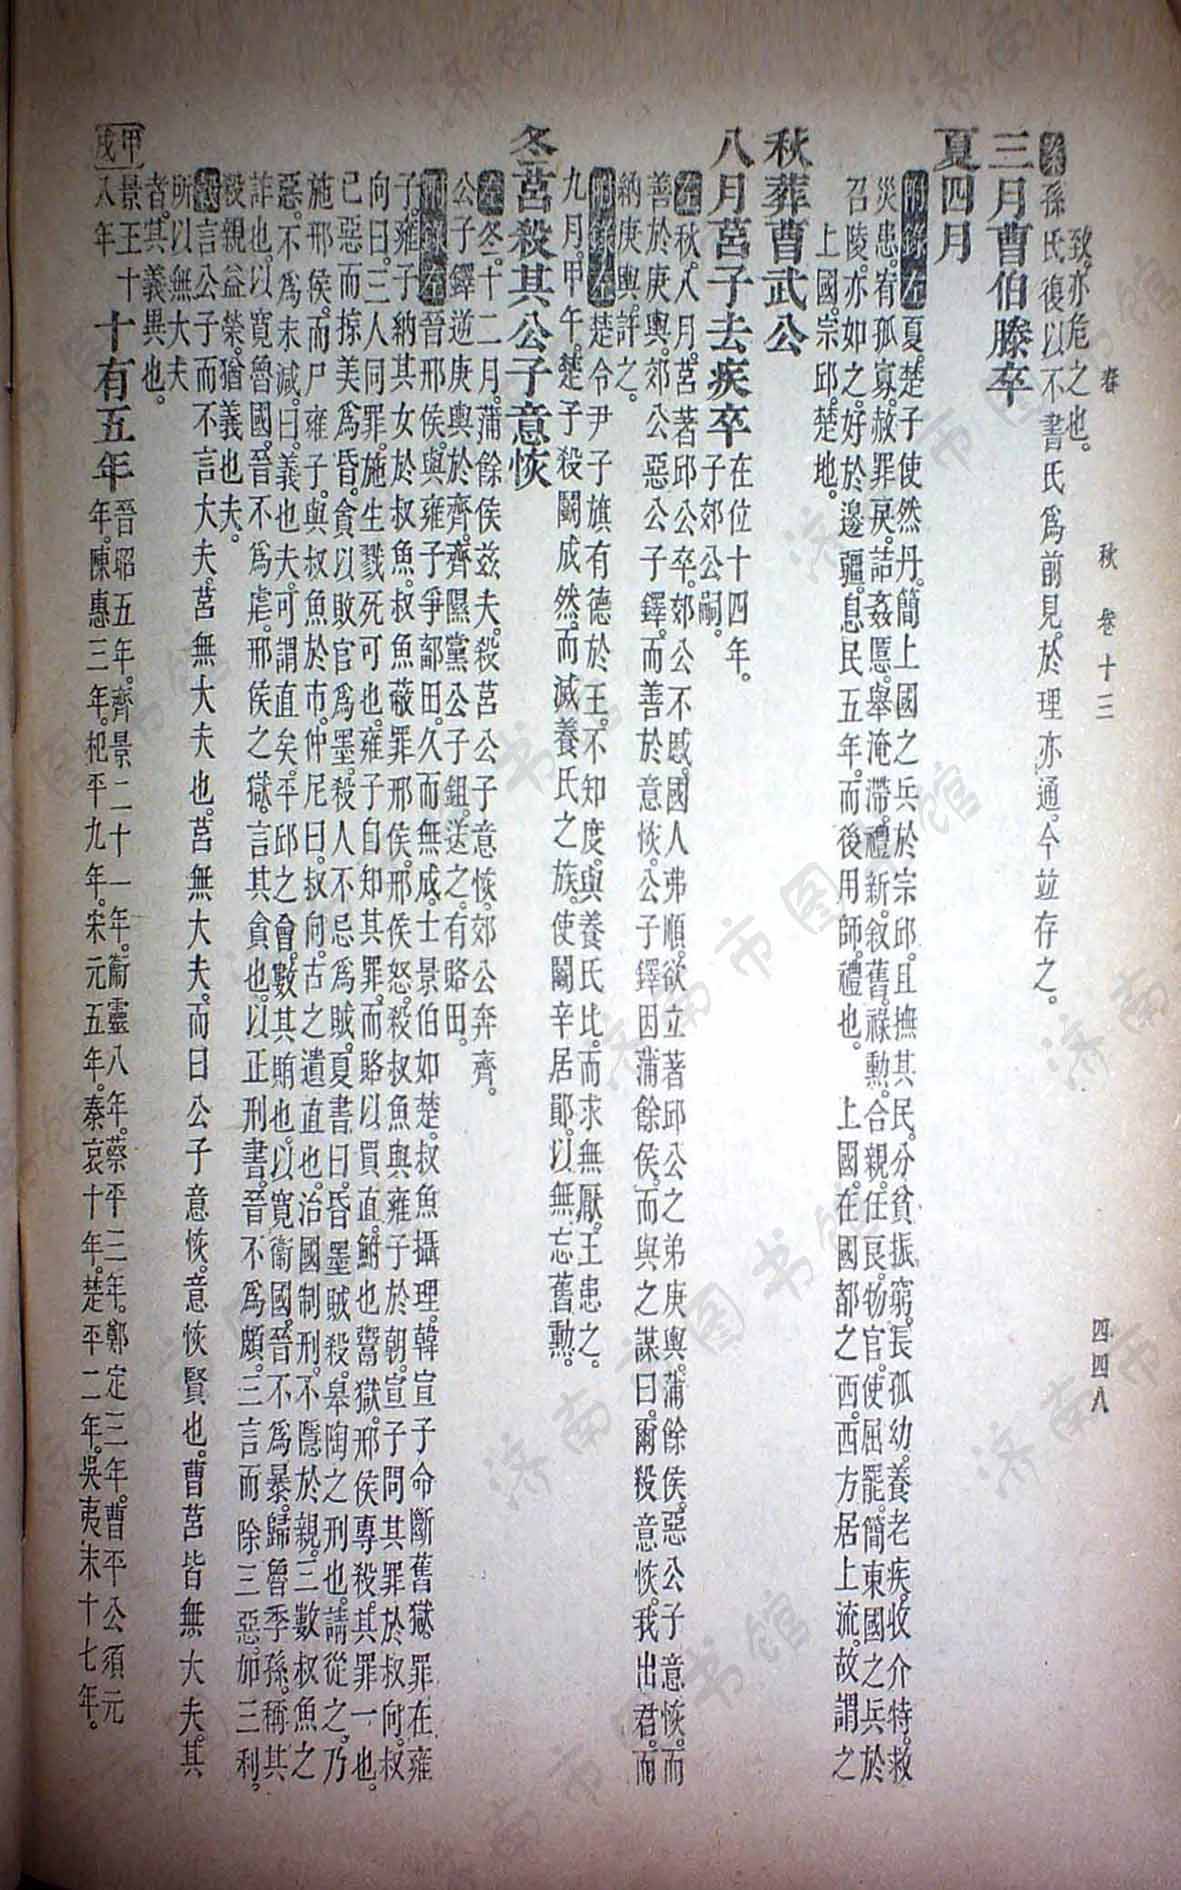 春 秋 卷十三 四四八
致亦危之也。
案孫氏復以不書氏爲前見。於理亦通。今並存之。
三月曹伯滕卒
夏四月
附錄左夏。楚子使然丹。簡上國之兵於宗邱。且撫其民。分貧振窮。長孤幼。養老疾。收介特。救
災患。宥孤寡。赦罪戾。詰姦慝。舉淹滯。禮新。敘舊。祿勳。合親。任良。物官。使屈罷。簡東國之兵於
召陵。亦如之。好於邊疆。息民五年。而後用師。禮也。 上國。在國都之西。西方居上流。故謂之
上國。宗邱。楚地。
秋葬曹武公
八月莒子去疾卒 在位十四年。
子郊公嗣。
左秋。八月。莒著邱公卒。郊公不慼。國人弗順。欲立著邱公之弟庚輿。蒲餘侯。惡公子意恢。而
善於庚輿。郊公惡公子鐸。而善於意恢。公子鐸因蒲餘侯。而與之謀曰。爾殺意恢。我出君。而
納庚輿。許之。
附錄左楚令尹子旗。有德於王。不知度。與養氏比。而求無厭。王患之。
九月。甲午。楚子殺鬬成然。而滅養氏之族。使鬬辛居鄖。以無忘舊勳。
冬莒殺其公子意恢
左冬。十二月。蒲餘侯茲夫。殺莒公子意恢。郊公奔齊。
公子鐸逆庚輿於齊。齊隰黨公子鉏。送之。有賂田。
附錄左晉邢侯。與雍子爭鄐田。久而無成。士景伯如楚。叔魚攝理。韓宣子命斷舊獄。罪在雍
子。雍子納其女於叔魚。叔魚蔽罪邢侯。邢侯怒。殺叔魚與雍子於朝。宣子問其罪於叔向。叔
向曰。三人同罪。施生戮死可也。雍子自知其罪。而賂以買直。鮒也鬻獄。邢侯專殺。其罪一也。
已惡而掠美爲昏。貪以敗官爲墨。殺人不忌爲賊。夏書曰。昏墨賊殺。皋陶之刑也。請從之。乃
施邢侯。而尸雍子。與叔魚於市。仲尼曰。叔向。古之遺直也。治國制刑。不隱於親。三數叔魚之
惡。不爲末減。曰。義也夫。可謂直矣。平邱之會。數其賄也。以寬衞國。晉不爲暴。歸魯季孫。稱其
詐也。以寬魯國。晉不爲虐。邢侯之獄。言其貪也。以正刑書。晉不爲頗。三言而除三惡。加三利。
殺親益榮。猶義也夫。
穀言公子而不言大夫。莒無大夫也。莒無大夫。而曰公子意恢。意恢賢也。曹莒皆無大夫。其
所以無大夫
者。其義異也。
甲戌 景王十八年 十有五年 晉昭五年。齊景二十一年。衞靈八年。蔡平三年。鄭定三年。曹平公須元
年。陳惠三年。杞平九年。宋元五年。秦哀十年。楚平二年。吳夷末十七年。